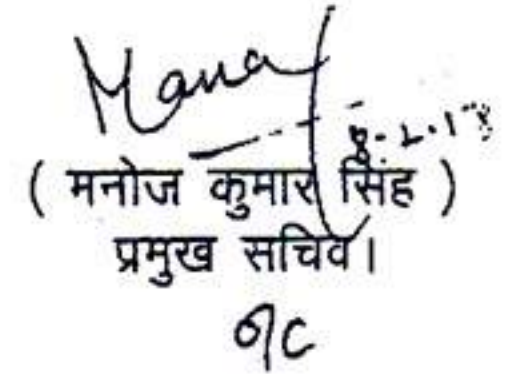 Manoj
8-2-18
( मनोज कुमार सिंह )
प्रमुख सचिव।